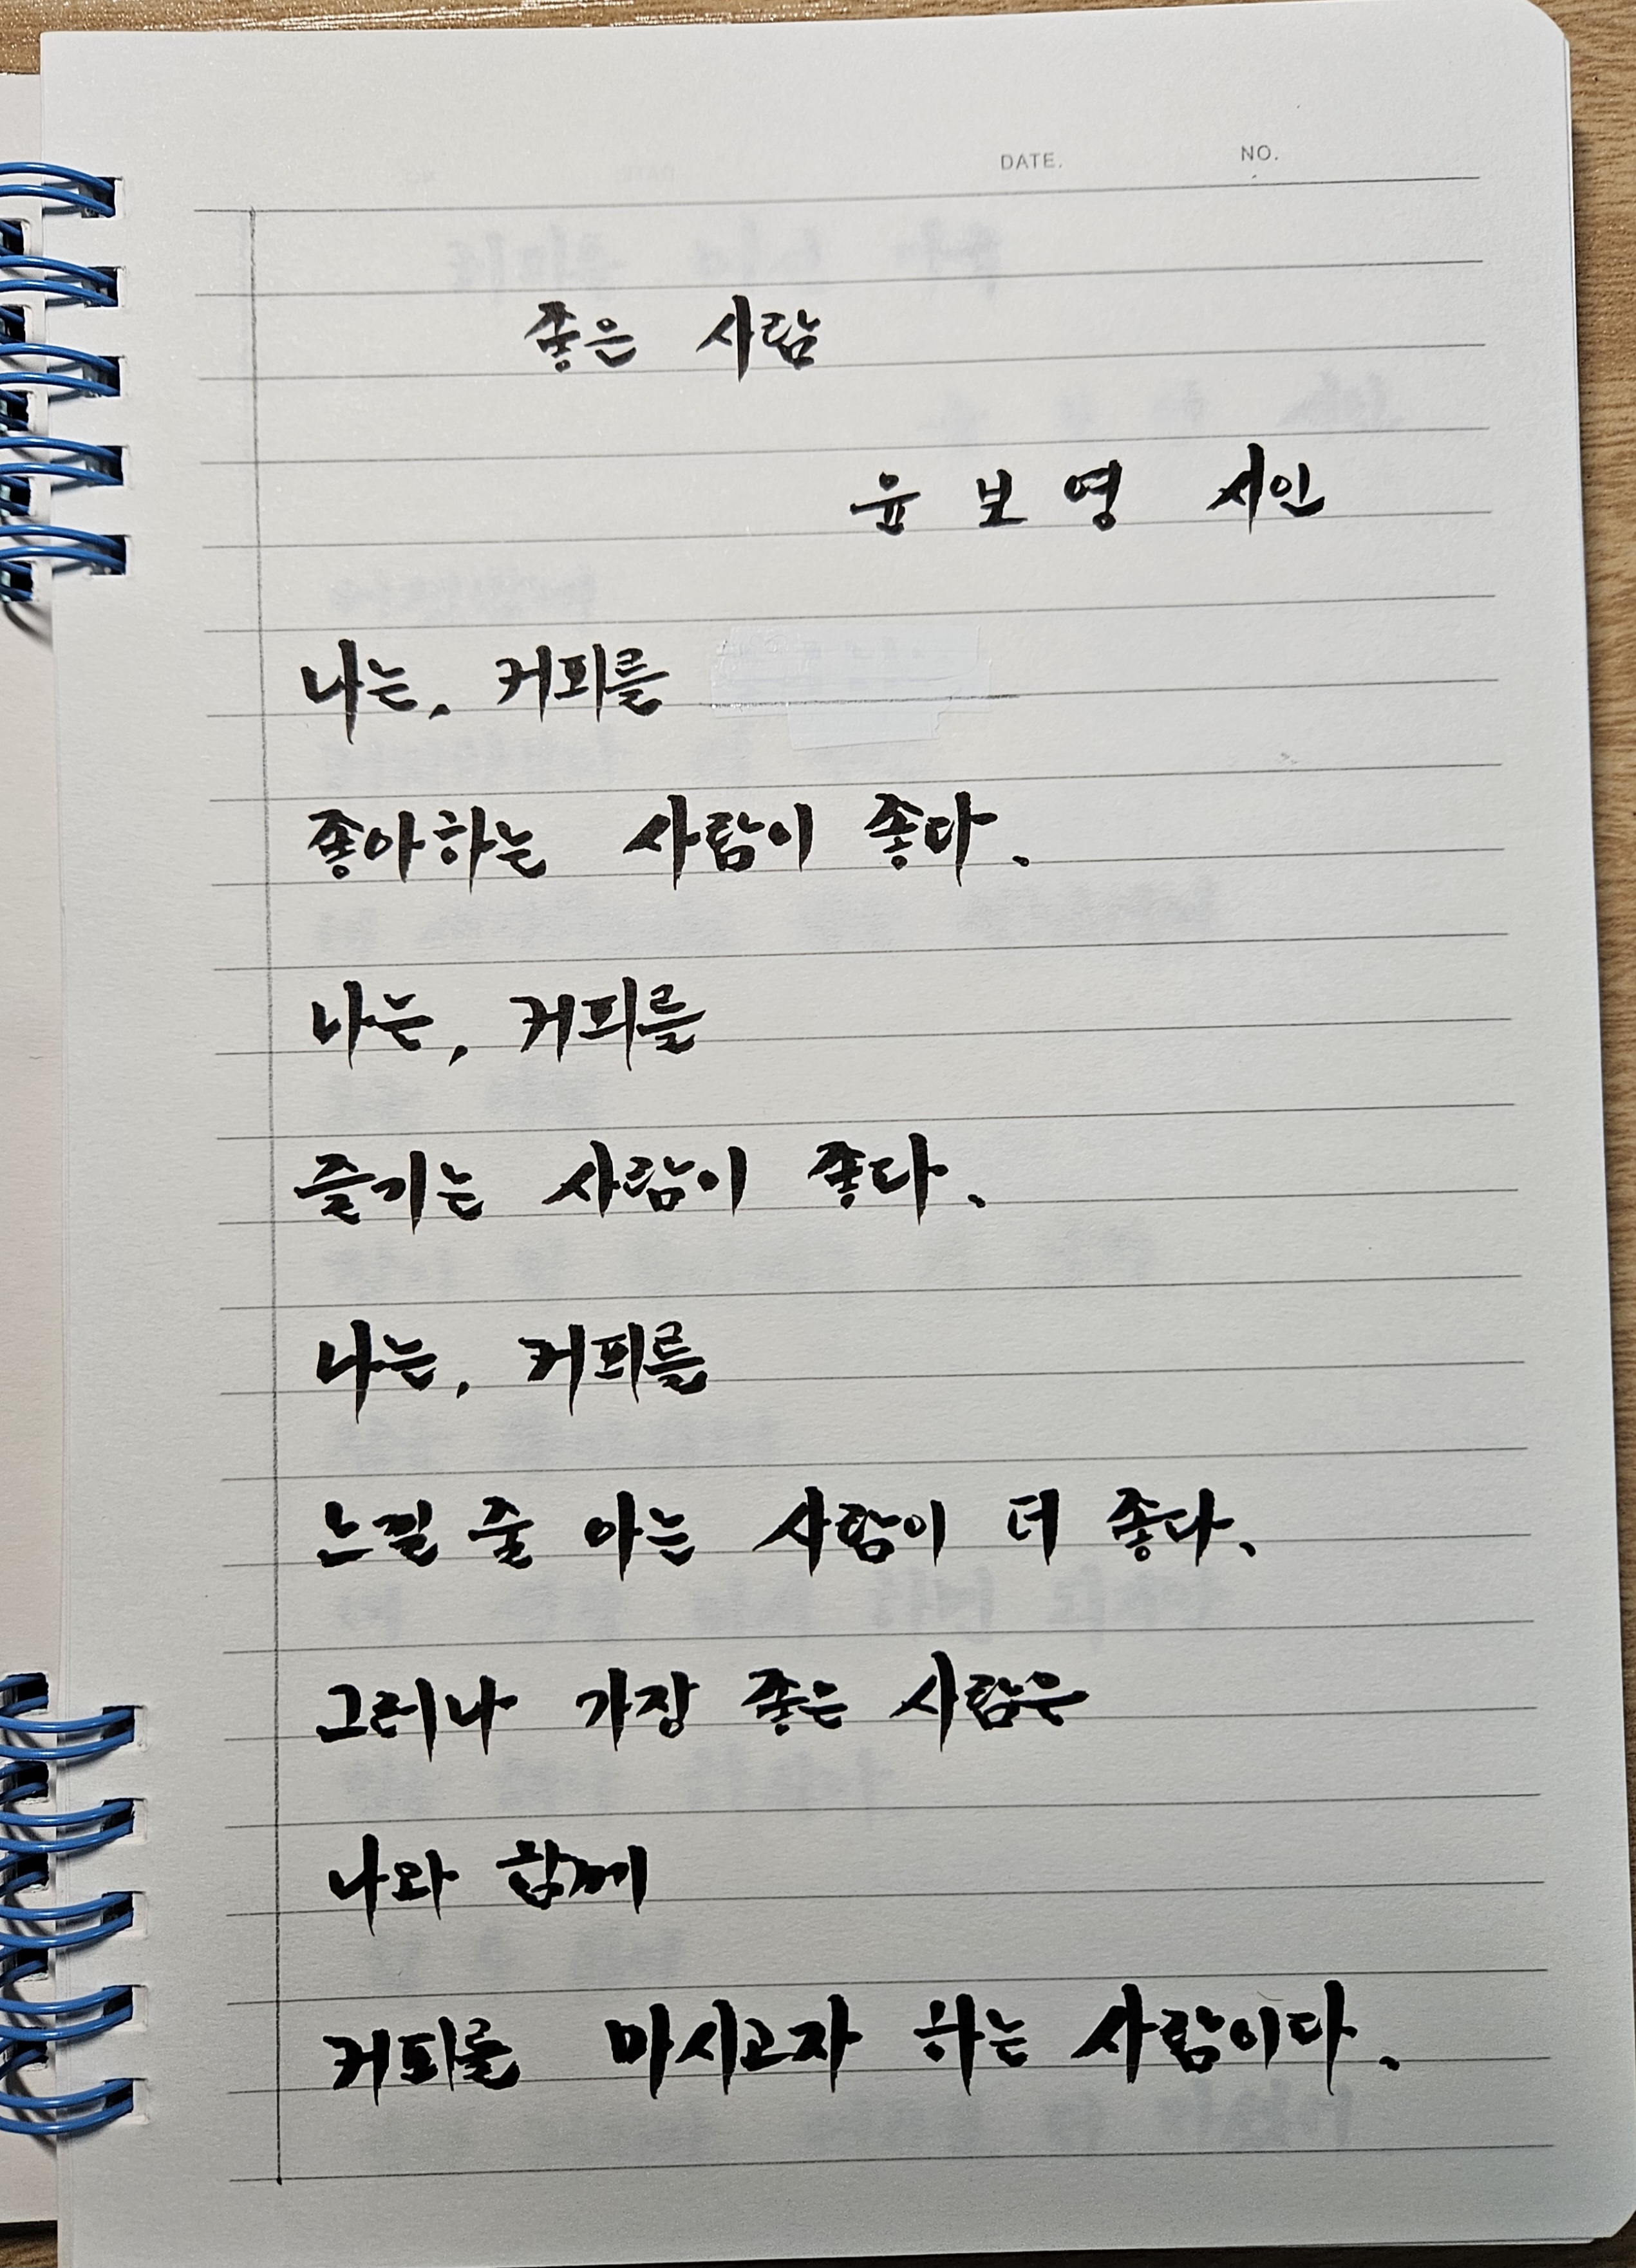 DATE. NO.
좋은 사람
윤 보 영 시인
나는, 커피를
좋아하는 사람이 좋다.
나는, 커피를
즐기는 사람이 좋다.
나는, 커피를
느낄 줄 아는 사람이 더 좋다.
그러나 가장 좋은 사람은
나와 함께
커피를 마시고자 하는 사람이다.